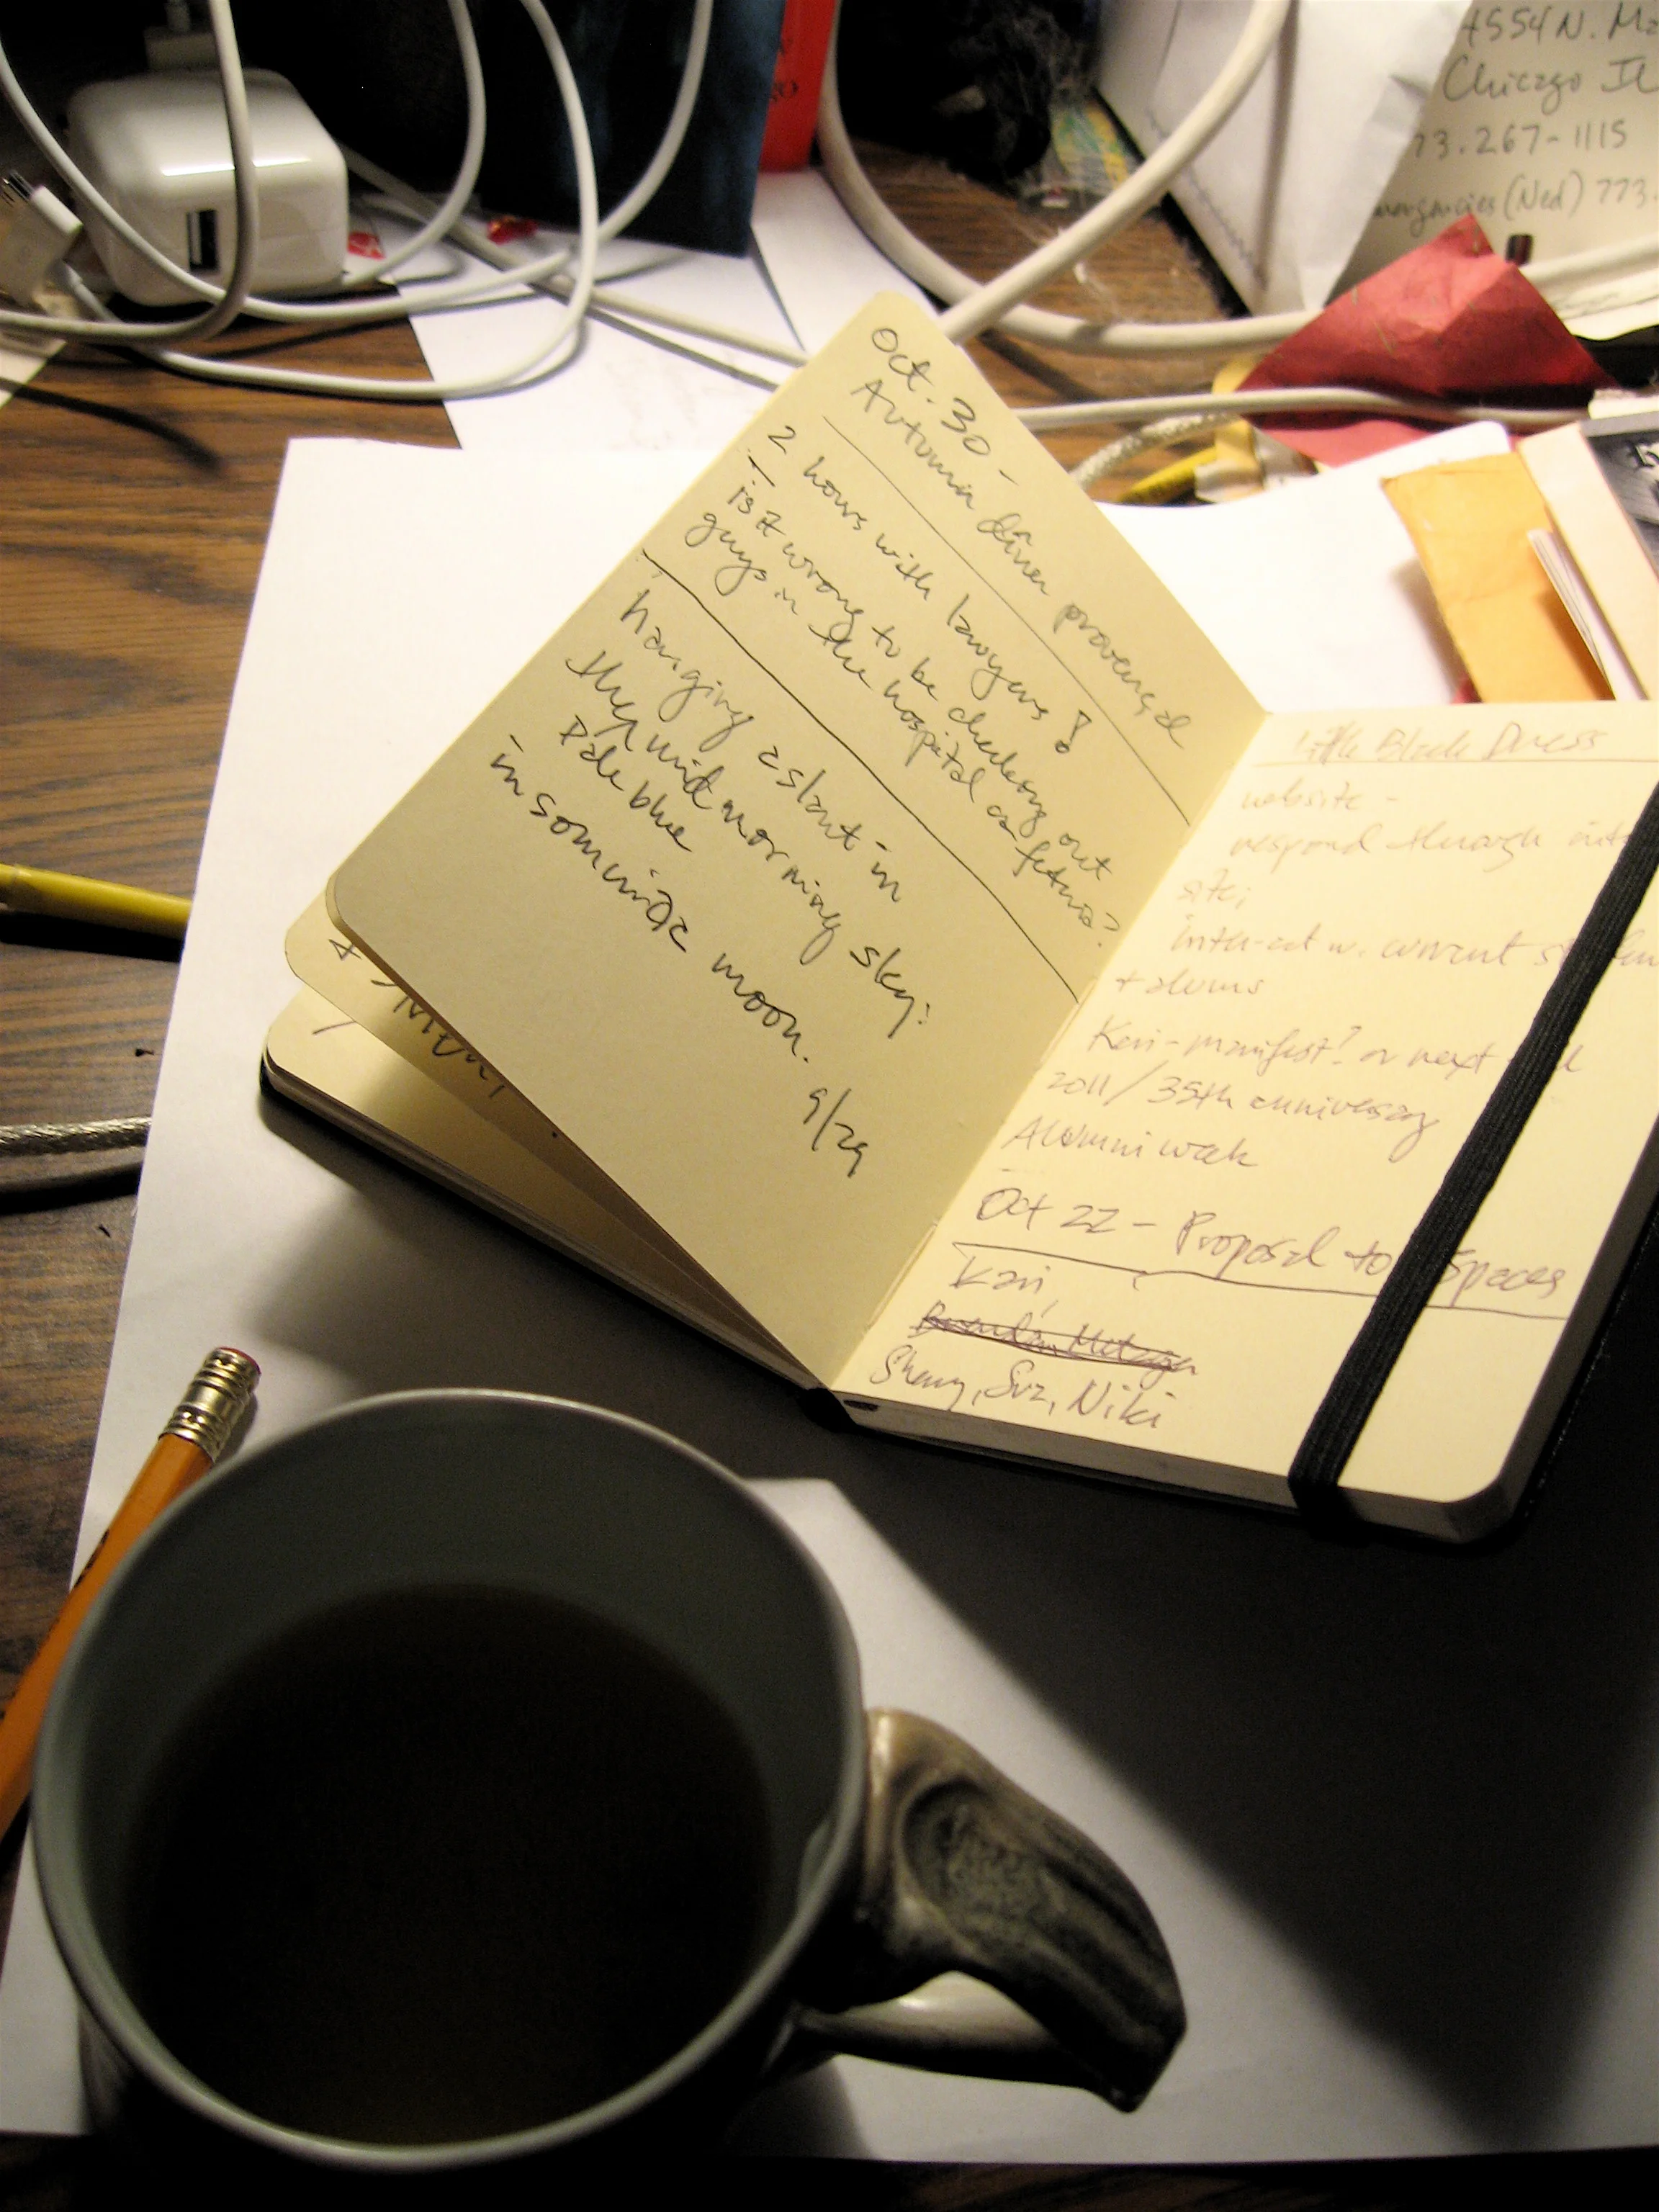 4554 N.
Chicago IL
73.267-1115
(Ned) 773.
Oct. 30 -
Autumn dinner proposal
2 hours with lawyers!
is it wrong to be checking out
guys in the hospital as fetus?
hanging aslant in
the mid morning sky:
Pale blue
insomniac moon.
9/29
Little Black Dress
website -
respond through
site;
inter-act w. current
+ alums
Keri - manifest? or next
2011/35th anniversary
Alumni week
Oct 22 - Proposal to Spaces
Kari,
Sherry, Suz, Niki